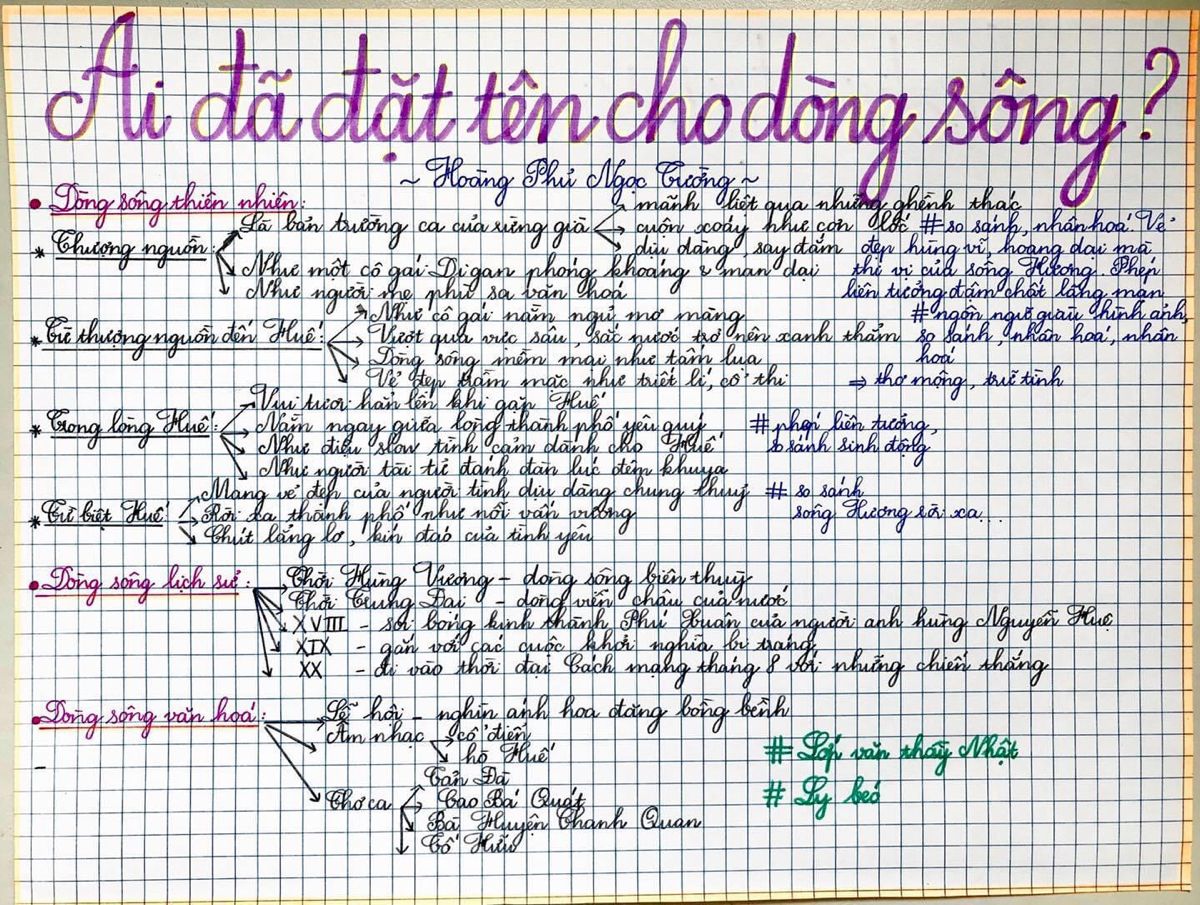 Ai đã đặt tên cho dòng sông?
~ Hoàng Phủ Ngọc Tường ~
• Dòng sông thiên nhiên:
* Thượng nguồn:
Là bản trường ca của rừng già
mãnh liệt qua những ghềnh thác
cuộn xoáy như cơn lốc
dịu dàng, say đắm
Như một cô gái Digan phóng khoáng & man dại
Như người mẹ phù sa văn hoá
# so sánh, nhân hoá. Vẻ
đẹp hùng vĩ, hoang dại mà
thi vị của sông Hương. Phép
liên tưởng đậm chất lãng mạn
* Từ thượng nguồn đến Huế:
Như cô gái nằm ngủ mơ màng
Vượt qua vực sâu, sắc nước trở nên xanh thẳm
Dòng sông mềm mại như tấm lụa
Vẻ đẹp trầm mặc như triết lí, cổ thi
# ngôn ngữ giàu hình ảnh,
so sánh, nhân hoá, nhân
hoá
⇒ thơ mộng, trữ tình
* Trong lòng Huế:
Vui tươi hẳn lên khi gần Huế
Nằm ngay giữa lòng thành phố yêu quý
Như điệu slow tình cảm dành cho Huế
Như người tài tử đánh đàn lúc đêm khuya
# phép liên tưởng,
so sánh sinh động
* Từ biệt Huế
Mang vẻ đẹp của người tình dịu dàng chung thuỷ
Rời xa thành phố như nỗi vấn vương
Chút lẳng lơ, kín đáo của tình yêu
# so sánh
sông Hương rời xa...
• Dòng sông lịch sử:
Thời Hùng Vương - dòng sông biên thuỳ
Thời Trung Đại - dòng viễn châu của nước
XVIII - soi bóng kinh thành Phú Xuân của người anh hùng Nguyễn Huệ
XIX - gắn với các cuộc khởi nghĩa bi tráng
XX - đi vào thời đại Cách mạng tháng 8 với những chiến thắng
• Dòng sông văn hoá:
Lễ hội - nghìn ánh hoa đăng bồng bềnh
Âm nhạc
cổ điển
hò Huế
Thơ ca
Tản Đà
Cao Bá Quát
Bà Huyện Thanh Quan
Tố Hữu
# Lớp văn thầy Nhật
# Ly béo